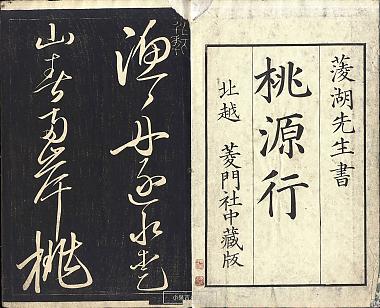 菱湖先生書
桃源行
北越　菱門社中藏版
漁舟逐水愛
山春兩岸桃